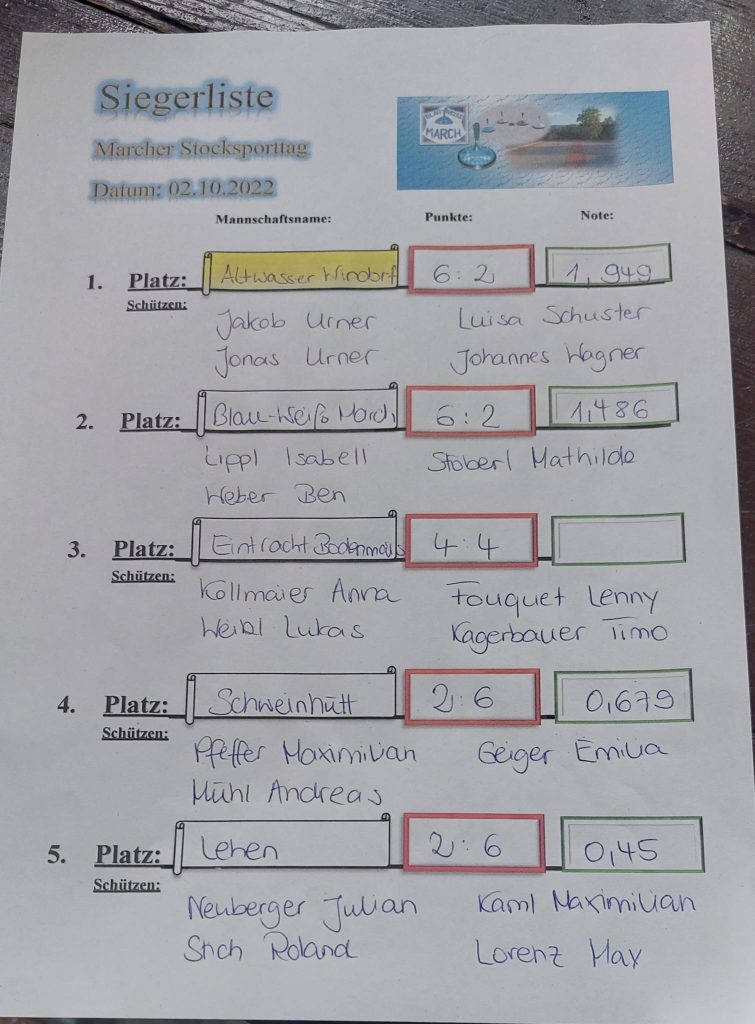 Siegerliste
Marcher Stocksporttag
Datum: 02.10.2022
MARCH
Mannschaftsname: Punkte: Note:
1. Platz: Altwasser Windorf 6:2 1,949
Schützen:
Jakob Urner Luisa Schuster
Jonas Urner Johannes Wagner
2. Platz: Blau-Weiß March 6:2 1,486
Lippl Isabell Stöberl Mathilde
Weber Ben
3. Platz: Eintracht Bodenmais 4:4
Schützen:
Kollmaier Anna Fouquet Lenny
Weibl Lukas Kagerbauer Timo
4. Platz: Schweinhütt 2:6 0,679
Schützen:
Pfeffer Maximilian Geiger Emilia
Mühl Andreas
5. Platz: Lehen 2:6 0,45
Schützen:
Neuberger Julian Kaml Maximilian
Stich Roland Lorenz Max